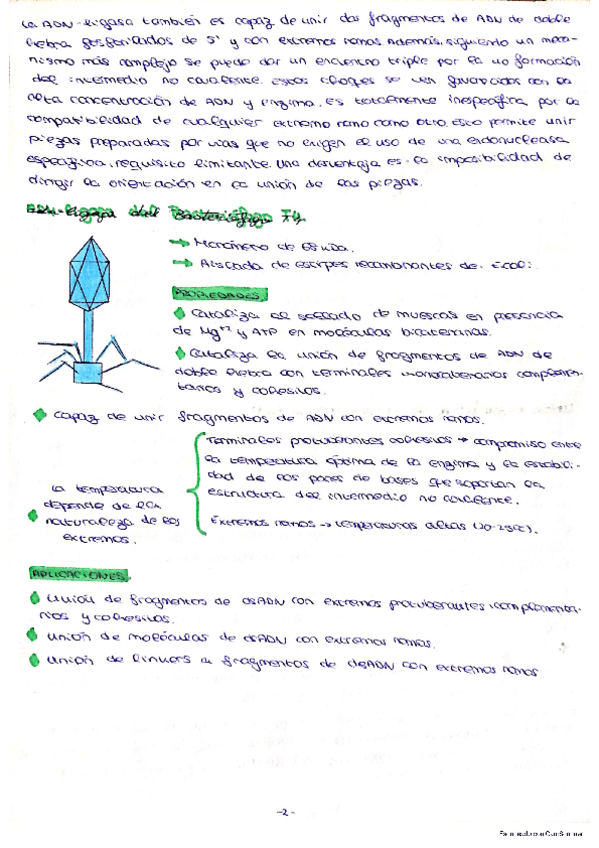 La ADN-ligasa también es capaz de unir dos fragmentos de ADN de doble
hebra fosforilados de 5' y con extremos romos. Además, siguiendo un meca-
nismo más complejo se puede dar un encuentro triple por la no formación
del intermedio no covalente. Estos choques se ven favorecidos con la
alta concentración de ADN y enzima, es totalmente inespecífica por la
compatibilidad de cualquier extremo romo como otro. Esto permite unir
piezas preparadas por vías que no exigen el uso de una endonucleasa
específica, requisito limitante. Una desventaja es la imposibilidad de
dirigir la orientación en la unión de las piezas.
ADN-ligasa del Bacteriófago T4.
→ Monómero de 68 kDa.
→ Aislada de estirpes recombinantes de E.coli.
PROPIEDADES.
Cataliza el sellado de muescas en presencia
de Mg+2 y ATP en moléculas bicatenarias.
Cataliza la unión de fragmentos de ADN de
doble hebra con terminales monocatenarios complemen-
tarios y cohesivos.
Capaz de unir fragmentos de ADN con extremos romos.
La temperatura
depende de la
naturaleza de los
extremos.
Terminales protuberantes cohesivos → compromiso entre
la temperatura óptima de la enzima y la estabili-
dad de los pares de bases que soportan la
estructura del intermedio no covalente.
Extremos romos → temperaturas altas (20-25ºC).
APLICACIONES.
Unión de fragmentos de dsADN con extremos protuberantes complementa-
rios y cohesivos.
Unión de moléculas de dsADN con extremos romos.
Unión de linkers a fragmentos de dsADN con extremos romos
-2-